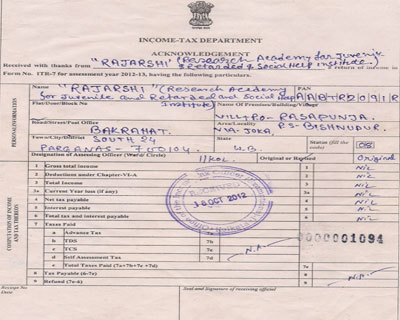 INCOME-TAX DEPARTMENT
ACKNOWLEDGEMENT
Received with thanks from "RAJARSHI" (Research Academy for Juvenile
& Retarded & Social Help Institute. return of income in
Form No. 1TR-7 for assessment year 2012-13, having the following particulars.
Name "RAJARSHI" (Research Academy PAN
for Juvenile and Retarded and Social Help AABTR2091R
Flat/Door/Block No Institute) Name Of Premises/Building/Village
VILL+PO- RASAPUNJA
Road/Street/Post Office Area/Locality
BAKRAHAT VIA. JOKA, PS- BISHNUPUR
Town/City/District State Status (fill the code)
SOUTH 24 W.B.
PARGANAS- 743104
Designation of Assessing Officer (Ward/Circle) 11 KOL Original or Revised Original
PERSONAL INFORMATION
COMPUTATION OF INCOME AND TAX THEREON
1 Gross total income 1 NIL
2 Deductions under Chapter-VI-A 2 NIL
3 Total Income 3 NIL
3a Current Year loss (if any) 3a NIL
4 Net tax payable 4 NIL
5 Interest payable 5 NIL
6 Total tax and interest payable 6 NIL
7 Taxes Paid
a Advance Tax 0000001094
b TDS 7b
c TCS 7c N.A.
d Self Assessment Tax 7d
e Total Taxes Paid (7a+7b+7c +7d) 7e
8 Tax Payable (6-7e) 8 N.A.
9 Refund (7e-6) 9
18 OCT 2012
Receipt No
Date Seal and Signature of receiving official